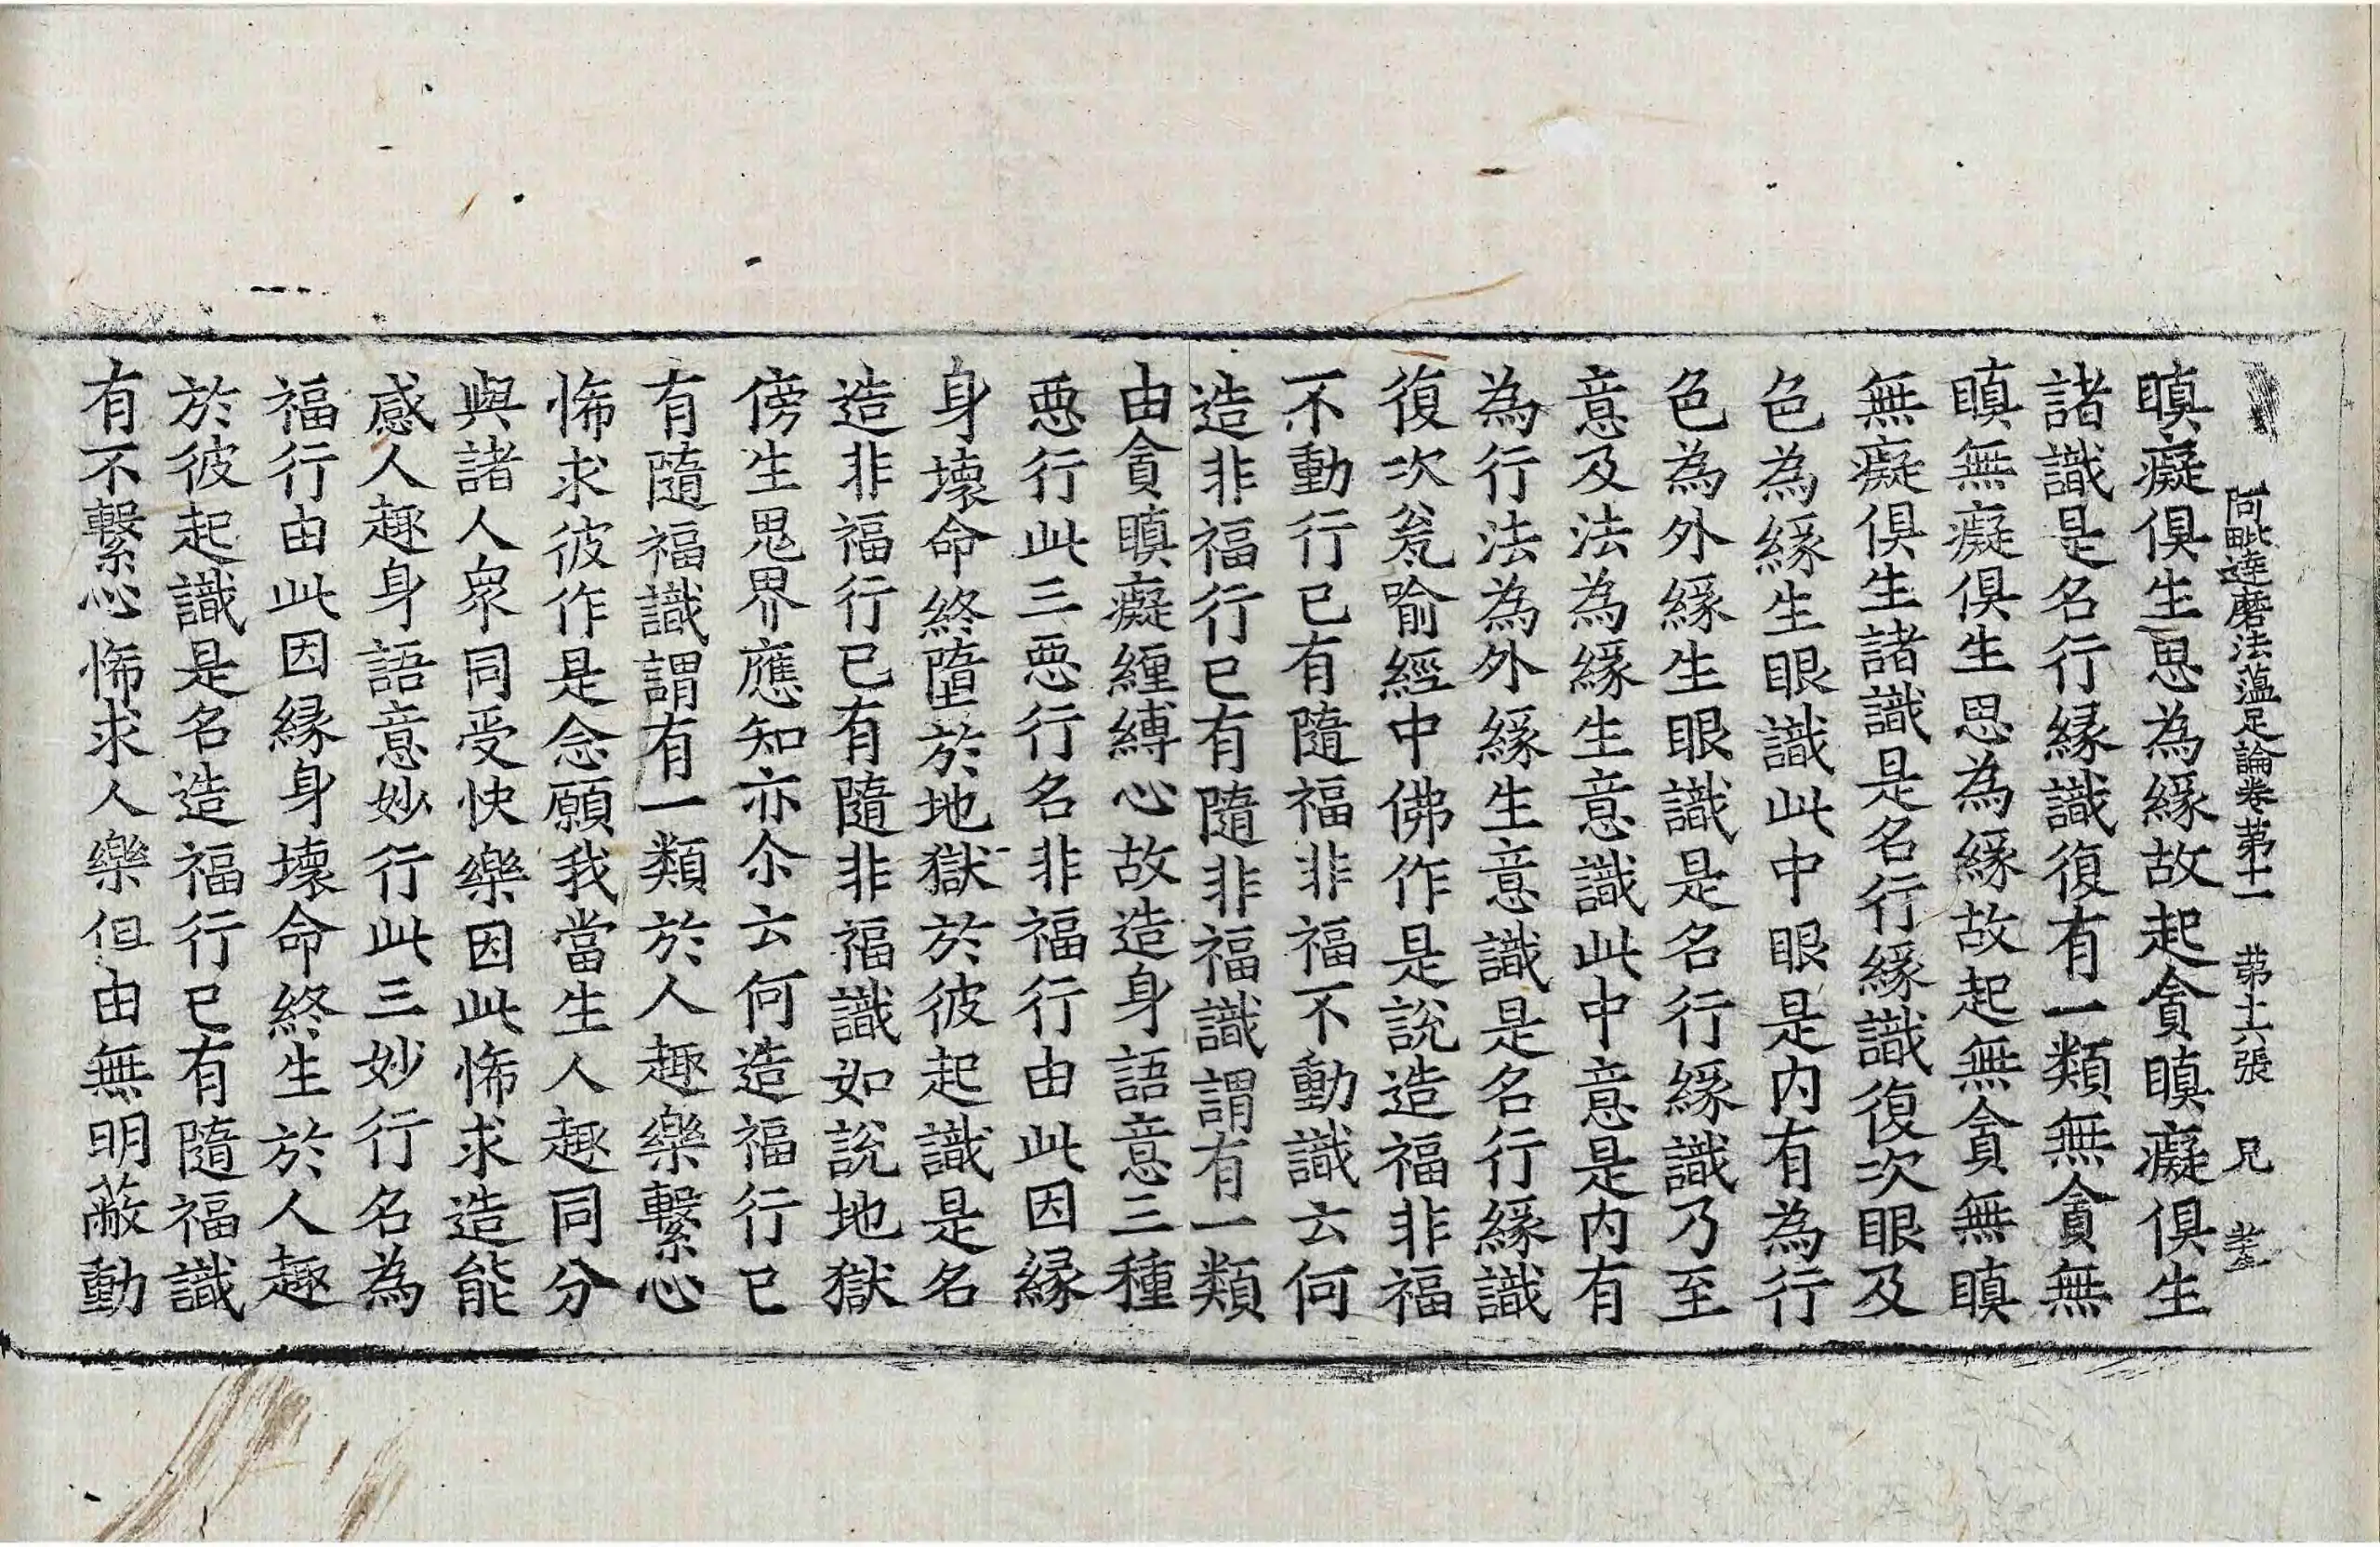 阿毗達磨法蘊足論卷第十一 第十六張 兄
瞋癡俱生思為緣故起貪瞋癡俱生
諸識是名行緣識復有一類無貪無
瞋無癡俱生思為緣故起無貪無瞋
無癡俱生諸識是名行緣識復次眼及
色為緣生眼識此中眼是內有為行
色為外緣生眼識是名行緣識乃至
意及法為緣生意識此中意是內有
為行法為外緣生意識是名行緣識
復次瓮喻經中佛作是說造福非福
不動行已有隨福非福不動識云何
造非福行已有隨非福識謂有一類
由貪瞋癡纏縛心故造身語意三種
惡行此三惡行名非福行由此因緣
身壞命終墮於地獄於彼起識是名
造非福行已有隨非福識如說地獄
傍生鬼界應知亦尒云何造福行已
有隨福識謂有一類於人趣樂繫心
悕求彼作是念願我當生人趣同分
與諸人眾同受快樂因此悕求造能
感人趣身語意妙行此三妙行名為
福行由此因緣身壞命終生於人趣
於彼起識是名造福行已有隨福識
有不繫心悕求人樂但由無明蔽動